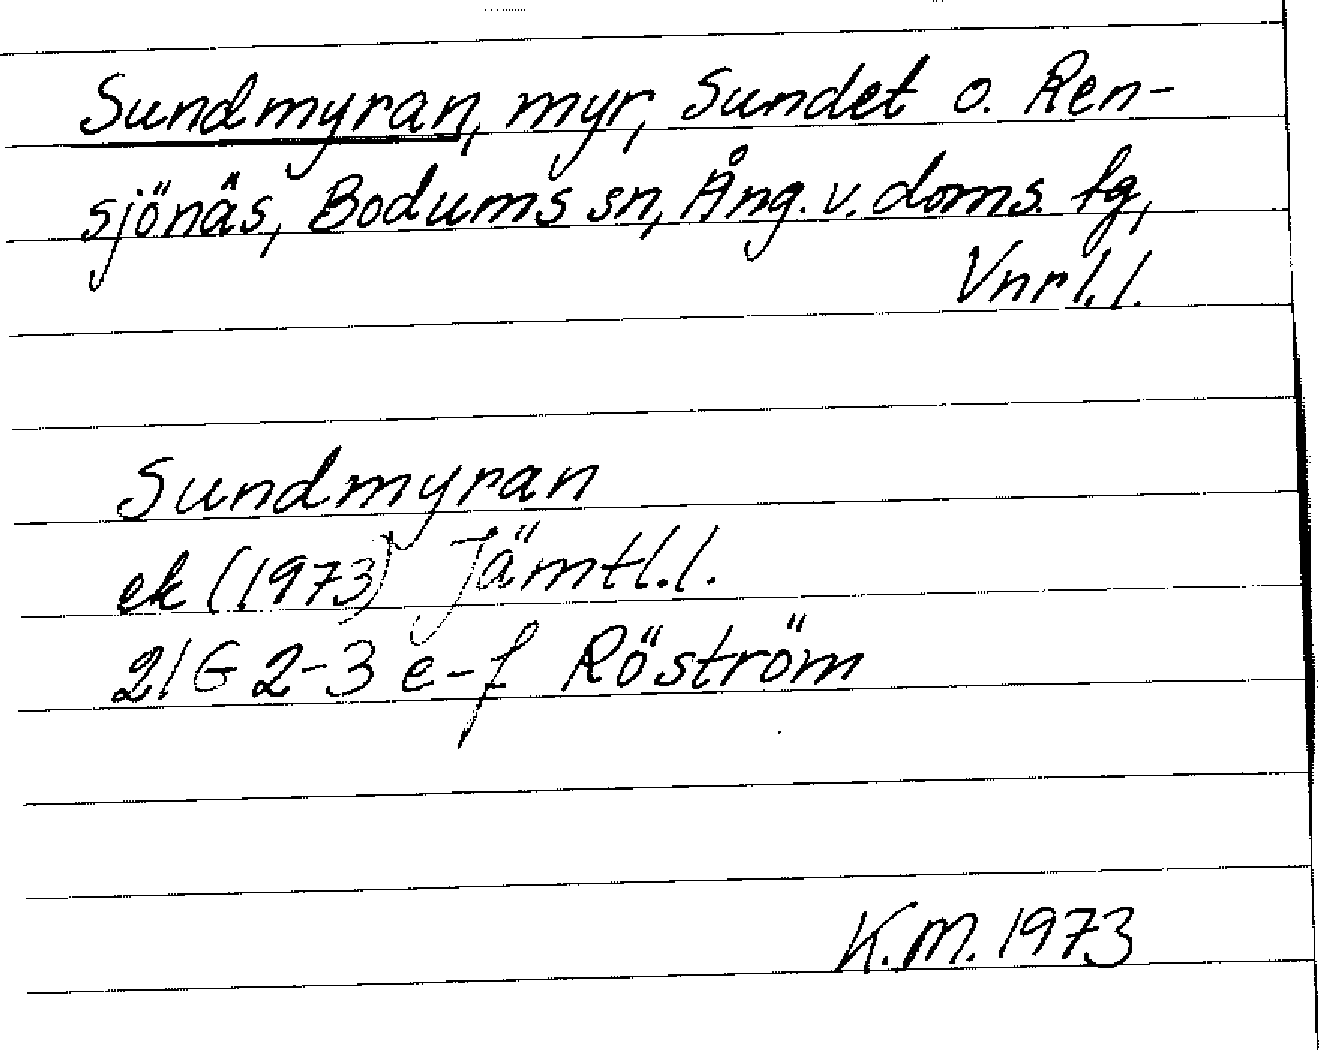 Sundmyran, myr, Sundet o. Ren-
sjönäs, Bodums sn, Ång. v. doms. fg,
Vnrl. l.
Sundmyran
ek (1973) Jämtl. l.
21G 2-3 e-f Röström
K.M. 1973